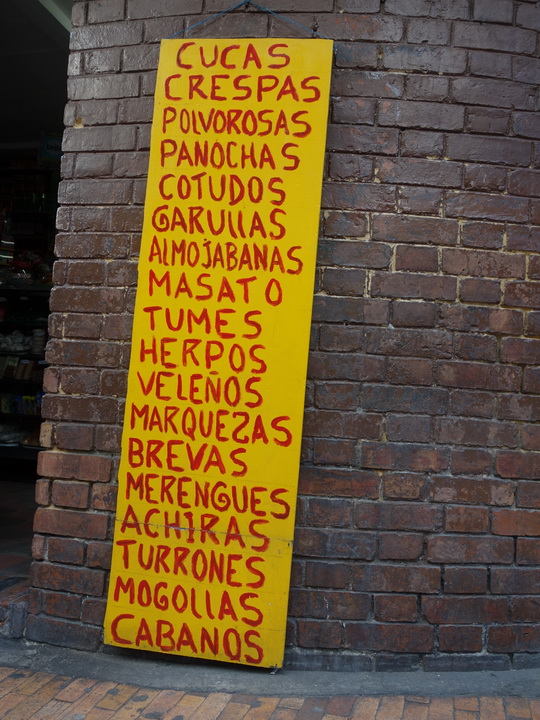 CUCAS
CRESPAS
POLVOROSAS
PANOCHAS
COTUDOS
GARULLAS
ALMOJABANAS
MASATO
TUMES
HERPOS
VELEÑOS
MARQUEZAS
BREVAS
MERENGUES
ACHIRAS
TURRONES
MOGOLLAS
CABANOS